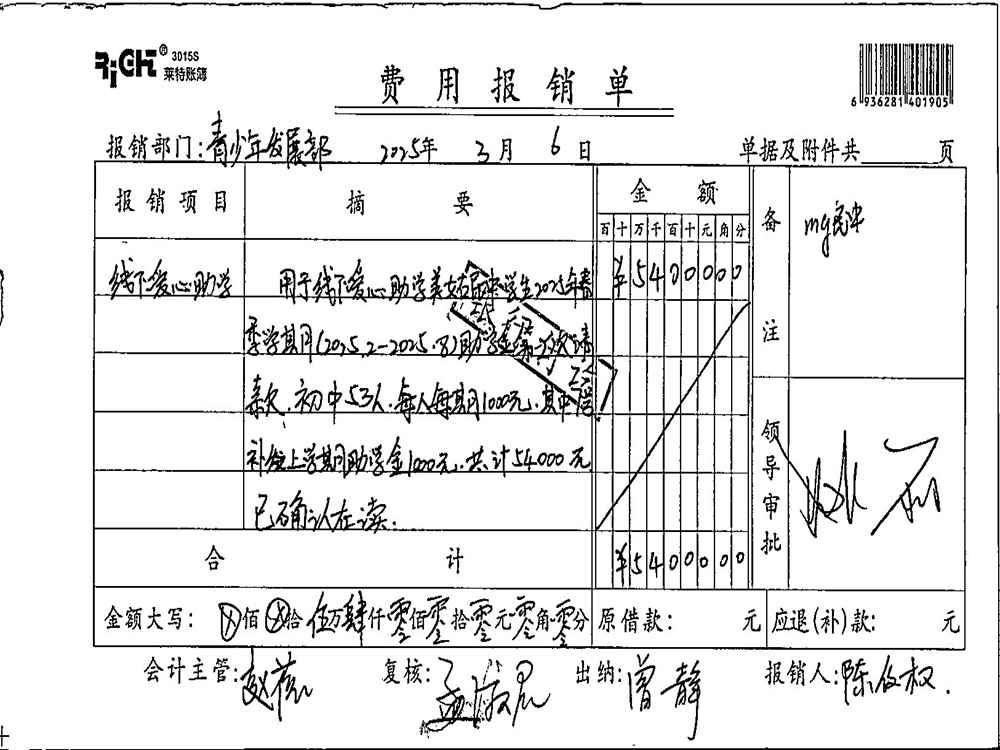 RiCH® 3015S
莱特账簿
费用报销单
6 936281 401905
报销部门:青少年发展部 2025年 3月 6日 单据及附件共 页
报销项目 摘要 金额 备注
百十万千百十元角分
线下爱心助学 用于线下爱心助学美姑 中学生2025年春 ¥5400000
季学期(2025.2-2025.8)助学金 请
款,初中53人,每人每期1000元,其中
补 上学期助学金1000元,共计54000元
已确认在读.
领导审批
合计 ¥5400000
金额大写: ⊗佰⊗拾伍万肆仟零佰零拾零元零角零分 原借款: 元 应退(补)款: 元
会计主管: 复核: 出纳:曾静 报销人:陈 权